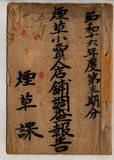 昭和十六年度第三期分
煙草小賣人店舖調查報告
煙草課